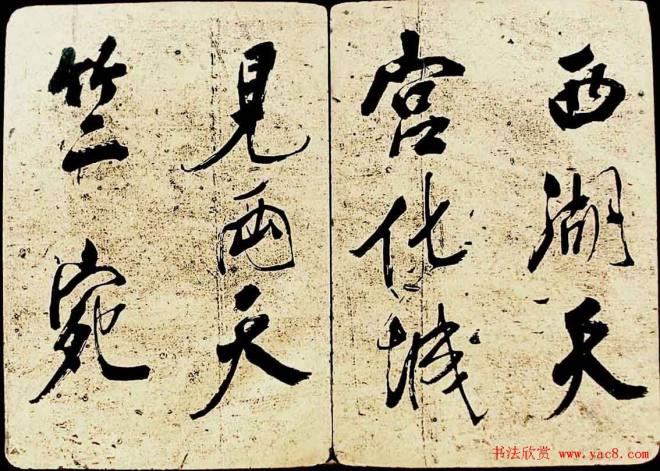 西湖天
宫化城
見西天
竺宛
书法欣赏 www.yac8.com